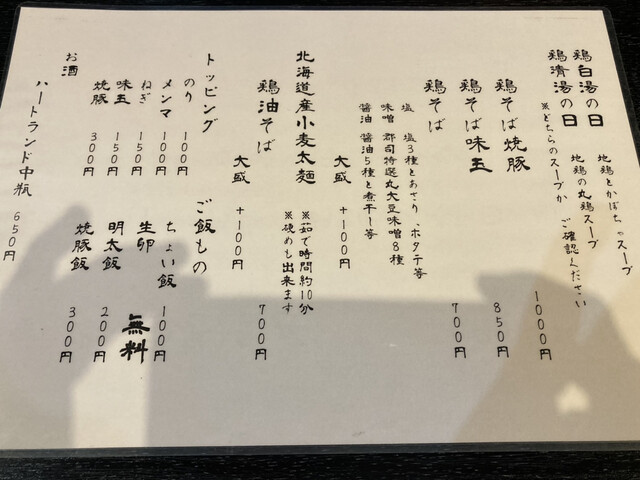 鶏白湯の日 地鶏とかぼちゃのスープ
鶏清湯の日 地鶏の丸鶏スープ
※どちらのスープか ご確認ください
鶏そば焼豚 1000円
鶏そば味玉 850円
鶏そば 700円
塩 塩3種とあさり、ホタテ等
味噌 郡司特選丸大豆味噌8種
醤油 醤油5種と煮干し等
大盛 +100円
北海道産小麦太麺 ※茹で時間約10分
※硬めも出来ます
鶏油そば 700円
大盛 +100円
トッピング
のり 100円
メンマ 100円
ねぎ 150円
味玉 150円
焼豚 300円
ご飯もの
ちょい飯 100円
生卵 無料
明太飯 200円
焼豚飯 300円
お酒
ハートランド中瓶 650円